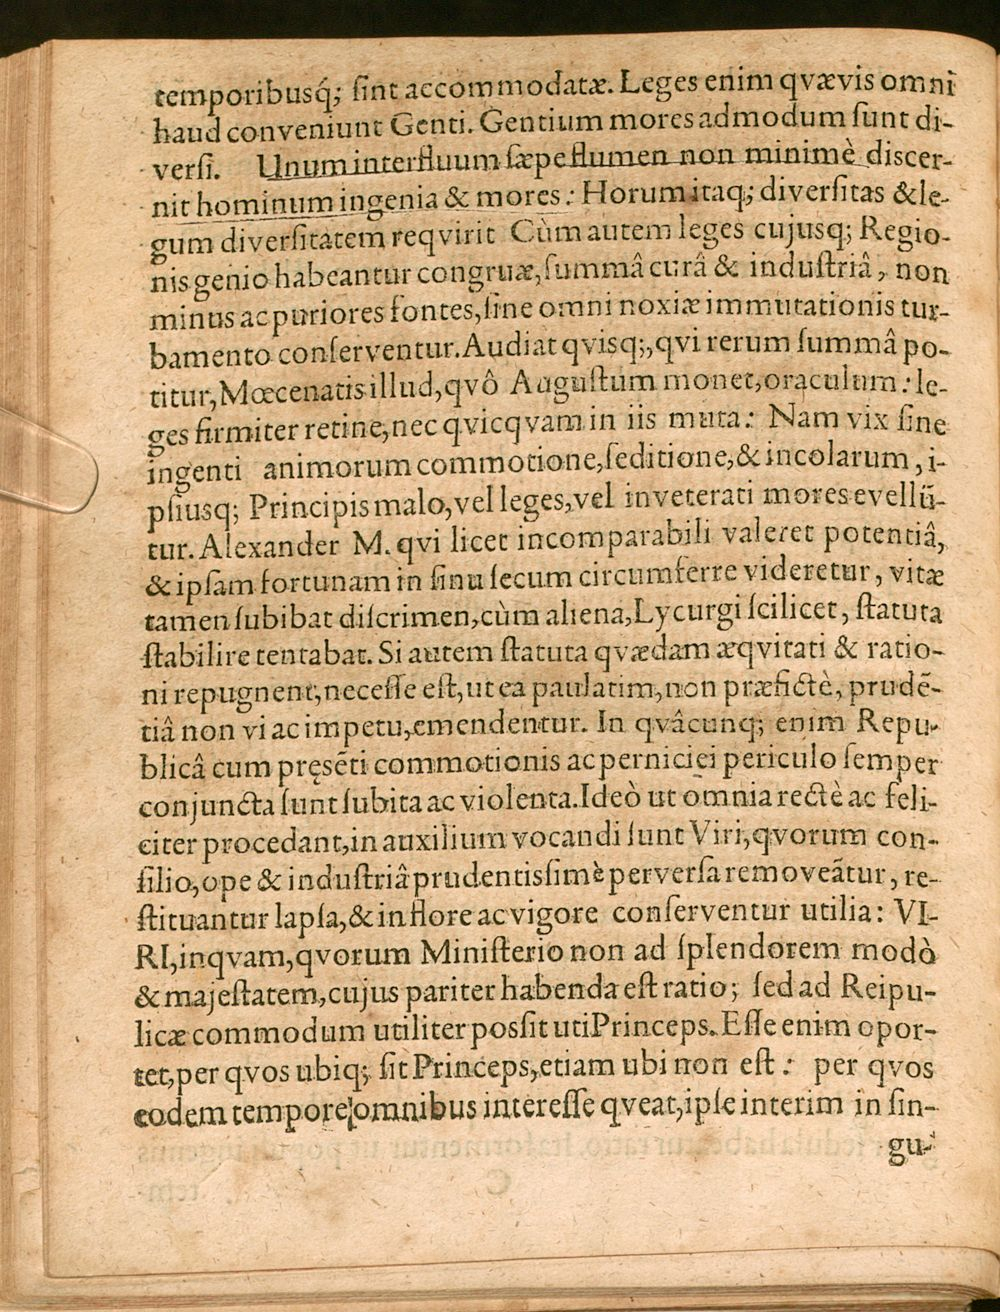 temporibusq́; ſint accommodatæ. Leges enim qvævis omni
haud conveniunt Genti. Gentium mores admodum ſunt di-
verſi. Unum interfluum ſæpe flumen non minimè diſcer-
nit hominum ingenia & mores: Horum itaq; diverſitas & le-
gum diverſitatem reqvirit Cùm autem leges cujusq; Regio-
nis genio habeantur congruæ, ſummâ curâ & induſtriâ, non
minus ac puriores fontes, ſine omni noxiæ immutationis tur-
bamento conſerventur. Audiat qvisq;, qvi rerum ſummâ po-
titur, Mœcenatis illud, qvô Auguſtum monet, oraculum: le-
ges firmiter retine, nec qvicqvam in iis muta: Nam vix ſine
ingenti animorum commotione, ſeditione, & incolarum, i-
pſiusq; Principis malo, vel leges, vel inveterati mores evellũ-
tur. Alexander M. qvi licet incomparabili valeret potentiâ,
& ipſam fortunam in ſinu ſecum circumferre videretur, vitæ
tamen ſubibat diſcrimen, cùm aliena, Lycurgi ſcilicet, ſtatuta
ſtabilire tentabat. Si autem ſtatuta qvædam æqvitati & ratio-
ni repugnent, neceſſe eſt, ut ea paulatim, non præfictè, prudẽ-
tiâ non vi ac impetu, emendentur. In qvâcunq; enim Repu-
blicâ cum pręsẽti commotionis ac perniciei periculo ſemper
conjuncta ſunt ſubita ac violenta. Ideò ut omnia rectè ac feli-
citer procedant, in auxilium vocandi ſunt Viri, qvorum con-
ſilio, ope & induſtriâ prudentisſimè perverſa removeãtur, re-
ſtituantur lapſa, & in flore ac vigore conſerventur utilia: VI-
RI, inqvam, qvorum Miniſterio non ad ſplendorem modò
& majeſtatem, cujus pariter habenda eſt ratio; ſed ad Reipu-
licæ commodum utiliter posſit uti Princeps. Eſſe enim opor-
tet, per qvos ubiq; ſit Princeps, etiam ubi non eſt: per qvos
eodem tempore omnibus intereſſe qveat, ipſe interim in ſin-
gu-